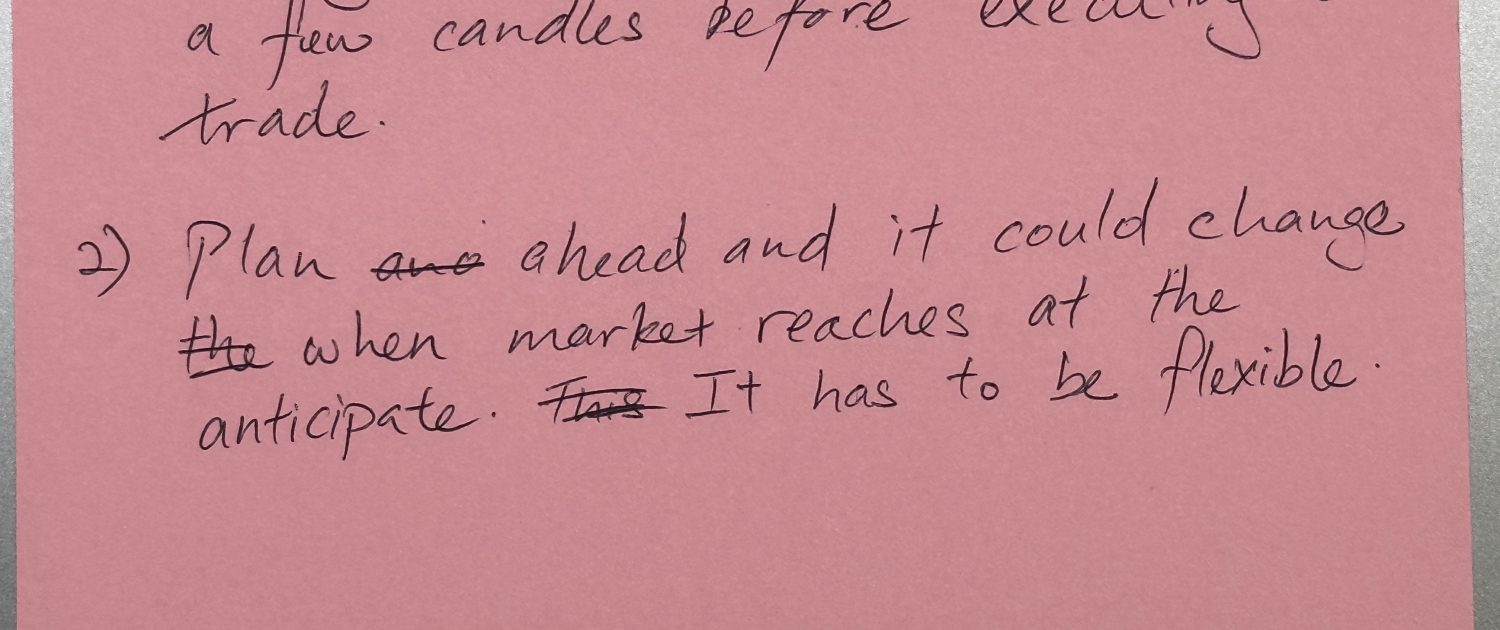 a few candles before executing
trade.
2) Plan ahead and it could change
when market reaches at the
anticipate. It has to be flexible.